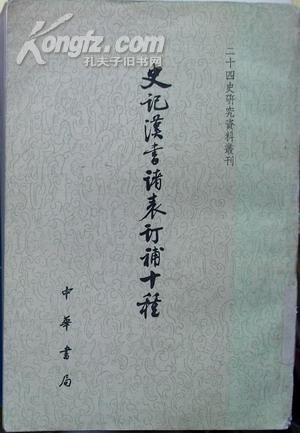 Kongfz.com
孔夫子旧书网
二十四史研究資料叢刊
史記漢書諸表訂補十種
中華書局